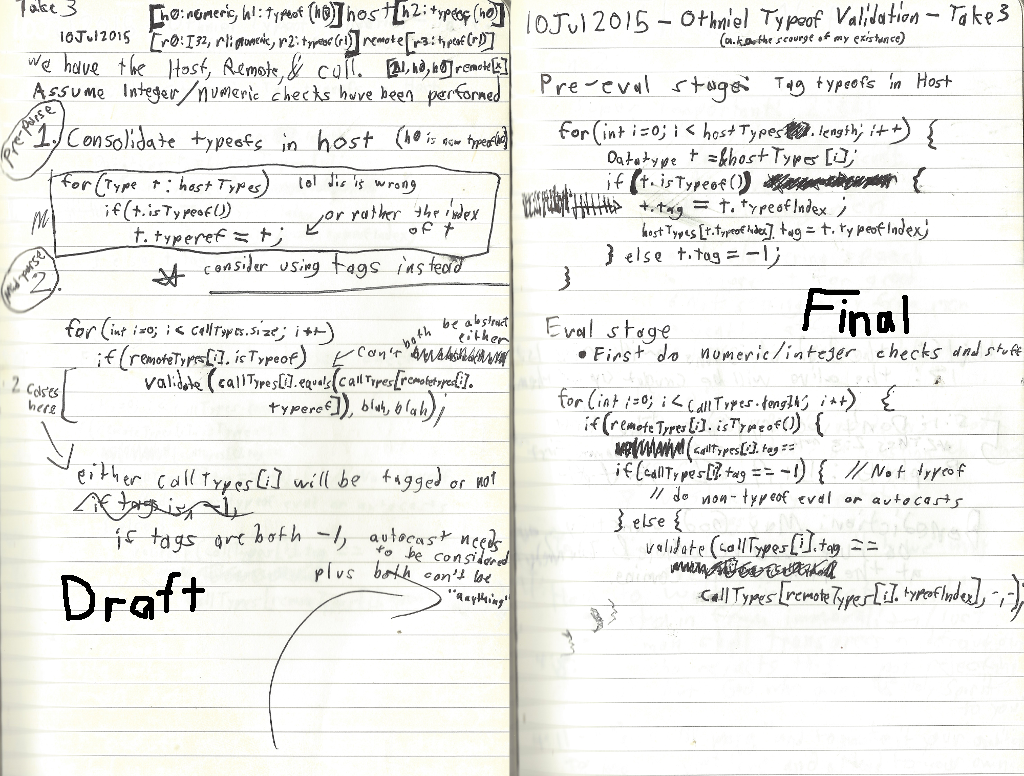 Take 3
[h0:numeric, h1: typeof (h0)] host [h2: typeof (h0)]
10Jul2015 [r0:I32, r1:numeric, r2:typeof(r1)] remote [r3:typeof(r1)]
we have the Host, Remote, & call. [21, h0, h0] remote[x]
Assume Integer/Numeric checks have been performed
Pre-parse
1. Consolidate typeofs in host (h0 is now typeof(h0)
for (Type t : hostTypes) lol dis is wrong
if (t.isTypeof())
t.typeref = t; or rather the index of t
Mid-parse
2.
consider using tags instead
for (int i=0; i < callTypes.size; i++)
if (remoteTypes[i].isTypeof) can't both be abstract either
2 cases here
validate (callTypes[i].equals(callTypes[remotetypes[i].
typeref]), blah, blah);
either callTypes[i] will be tagged or not
if tag is -1,
if tags are both -1, autocast needs
to be considered
plus both can't be
"anything"
Draft
10Jul2015 - Othniel Typeof Validation - Take 3
(a.k.a. the scourge of my existence)
Pre-eval stage: Tag typeofs in Host
for (int i=0; i < hostTypes.length; i++) {
Datatype t = &hostTypes[i];
if (t.isTypeof()) {
t.tag = t.typeofIndex;
hostTypes[t.typeofIndex].tag = t.typeofIndex;
} else t.tag = -1;
}
Final
Eval stage
• First do numeric/integer checks and stuff
for (int i=0; i < callTypes.length; i++) {
if (remoteTypes[i].isTypeof()) {
(callTypes[i].tag ==
if (callTypes[i].tag == -1) { // Not typeof
// do non-typeof eval or autocasts
} else {
validate (callTypes[i].tag ==
callTypes[remoteTypes[i].typeofIndex], -, -);